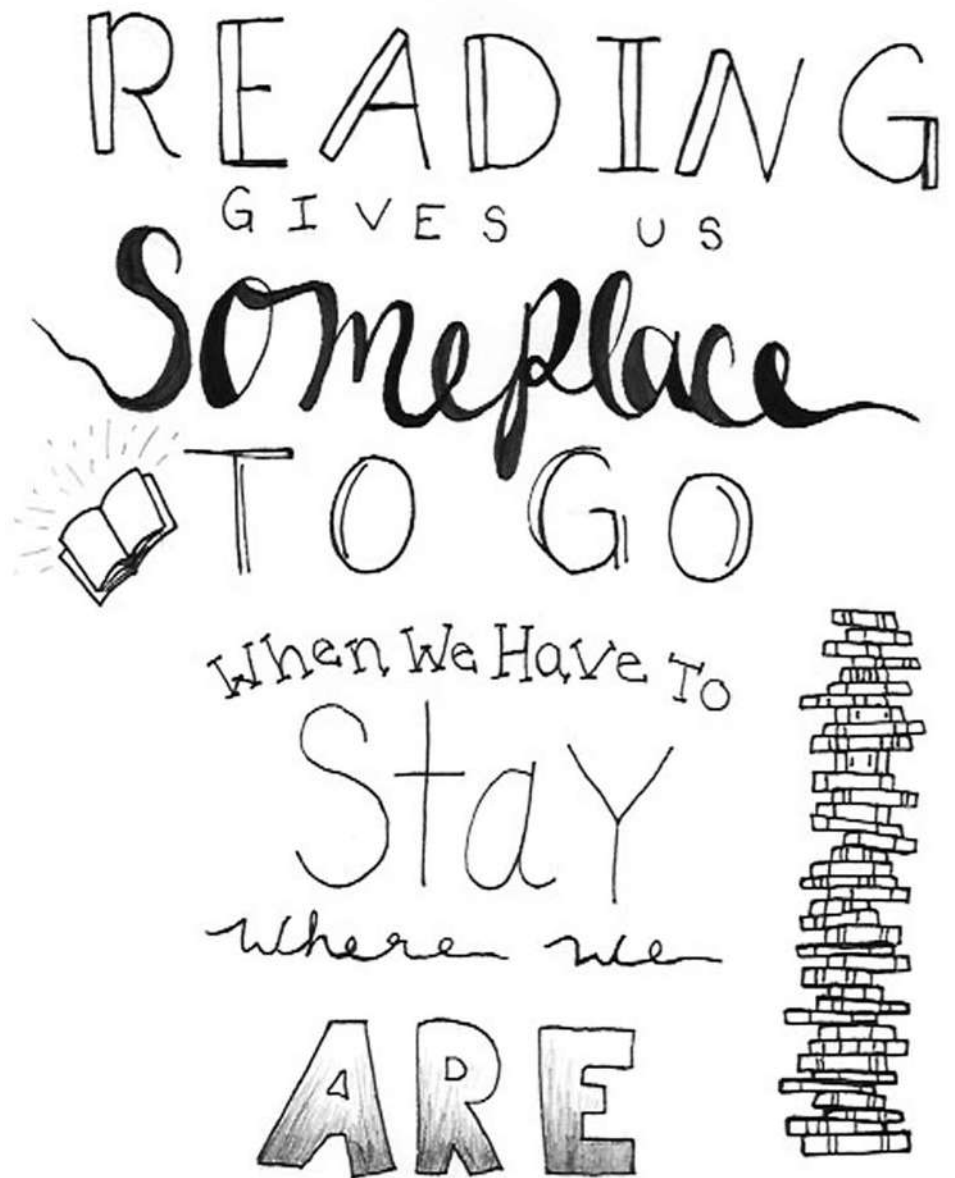 READING
GIVES US
Someplace
TO GO
When We Have To
Stay
where we
ARE